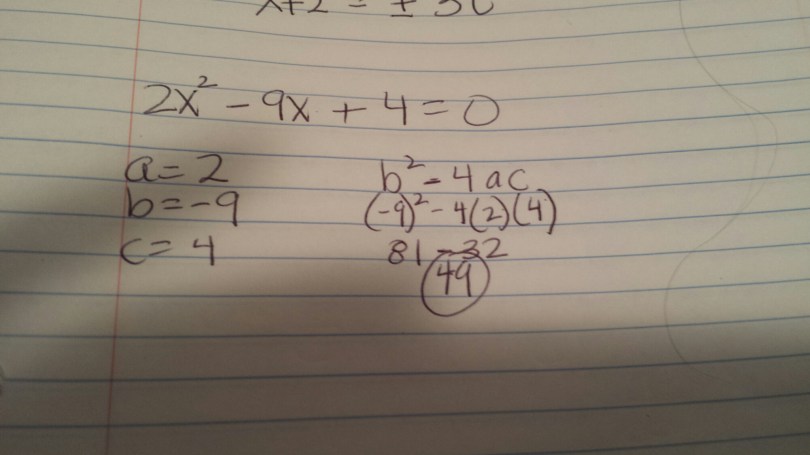 x+2 = ±
2x² - 9x + 4 = 0
a = 2
b = -9
c = 4
b² - 4ac
(-9)² - 4(2)(4)
81 - 32
49